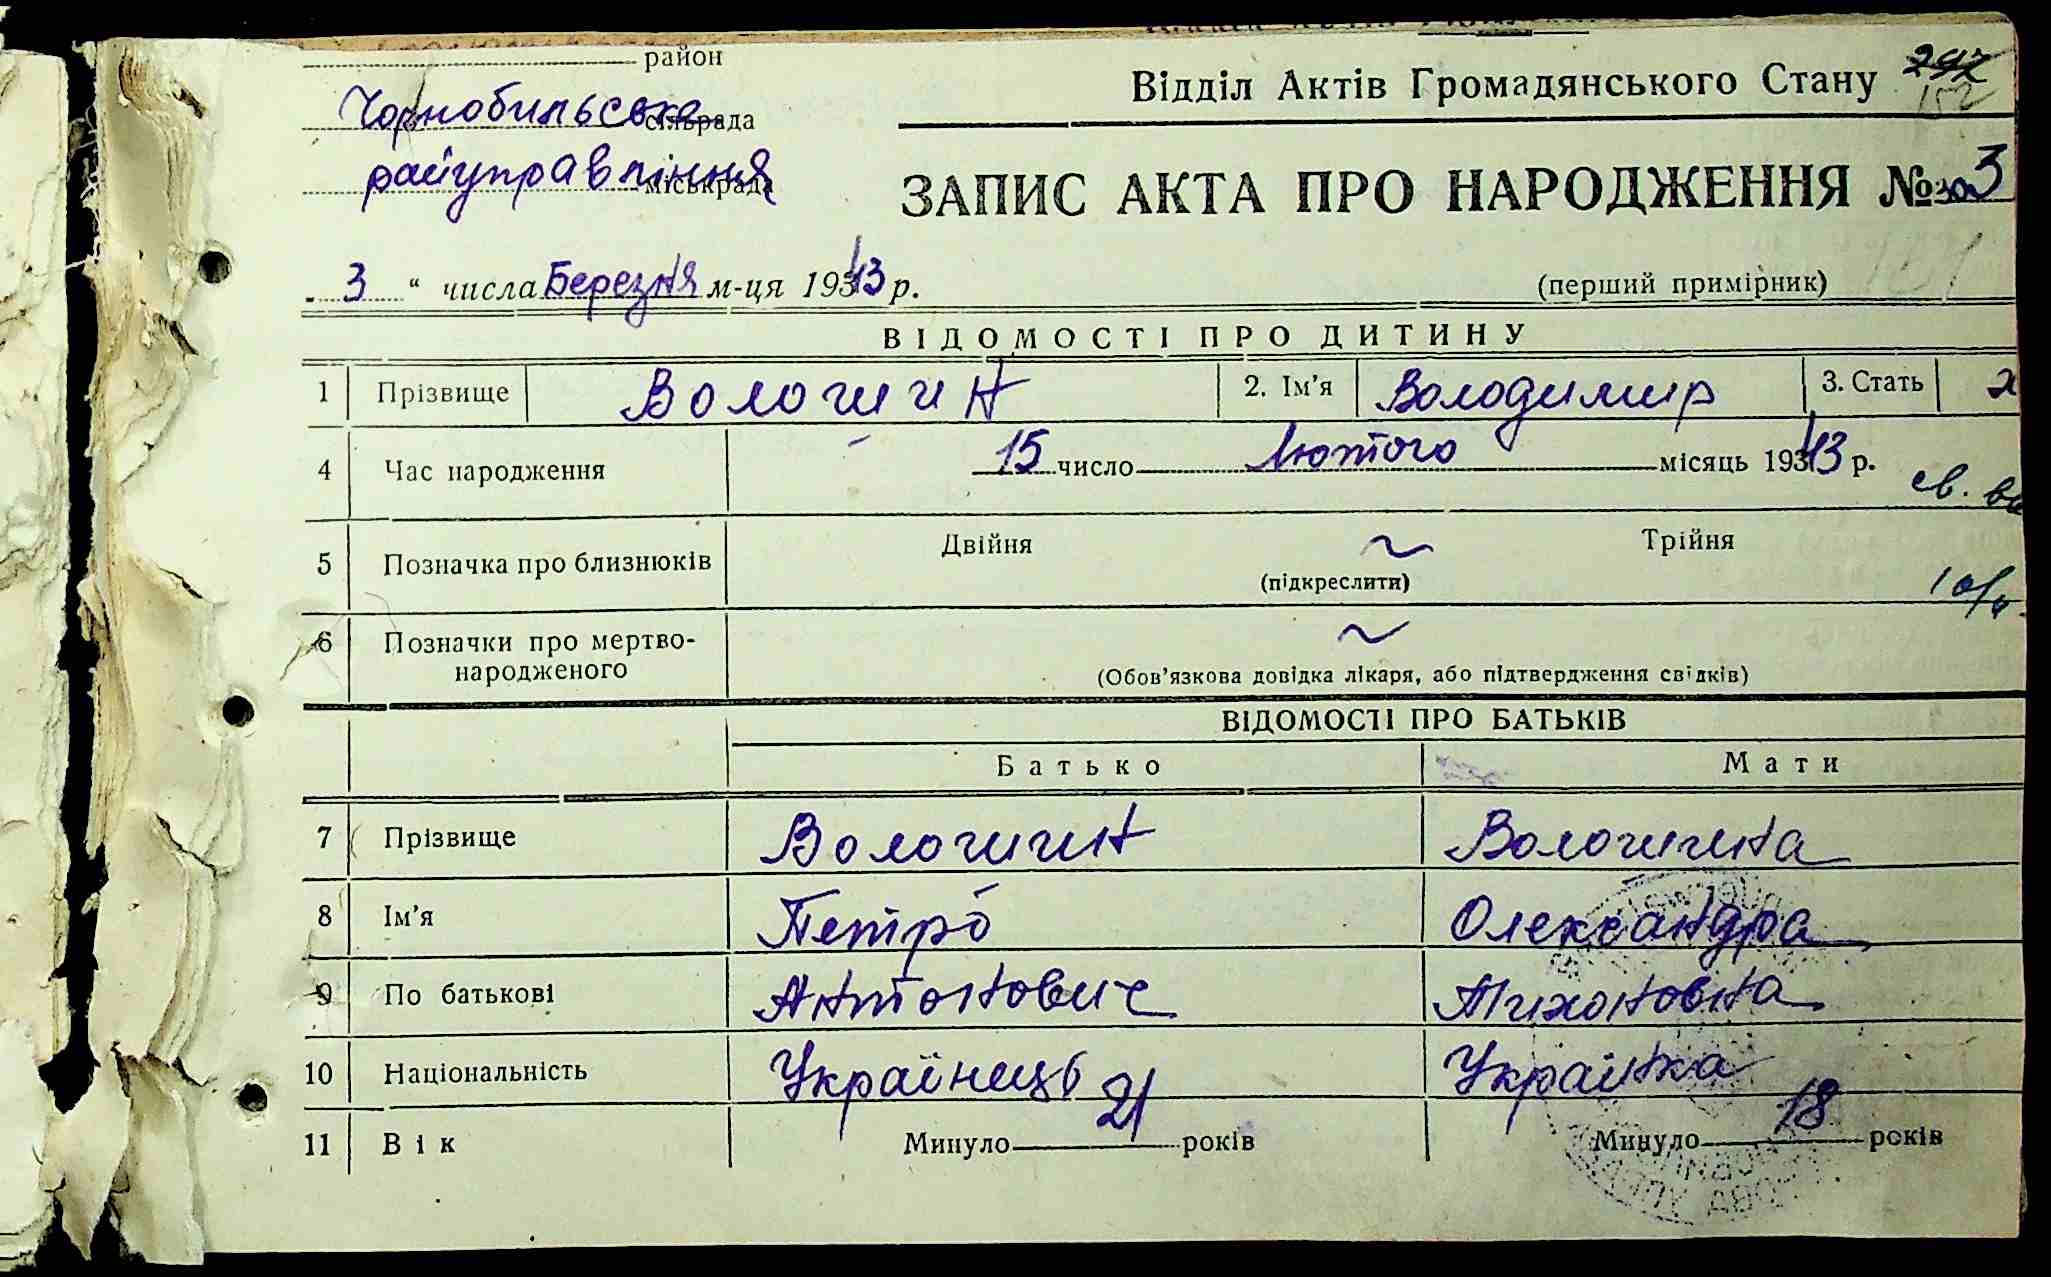 район
Чорнобильська сільрада
райуправління міськрада
Відділ Актів Громадянського Стану 292
152
ЗАПИС АКТА ПРО НАРОДЖЕННЯ № 3
3 " числа Березня м-ця 1943 р.
(перший примірник)
ВІДОМОСТІ ПРО ДИТИНУ
1 Прізвище Вологин 2. Ім'я Володимир 3. Стать
4 Час народження 15 число Лютого місяць 1943 р.
св.
5 Позначка про близнюків Двійня ~ Трійня
(підкреслити)
6 Позначки про мертво-
народженого ~
(Обов'язкова довідка лікаря, або підтвердження свідків)
ВІДОМОСТІ ПРО БАТЬКІВ
Батько Мати
7 Прізвище Вологин Вологина
8 Ім'я Петро Олександра
9 По батькові Антонович Тихоновна
10 Національність Українець Українка
11 Вік Минуло 21 років Минуло 18 років